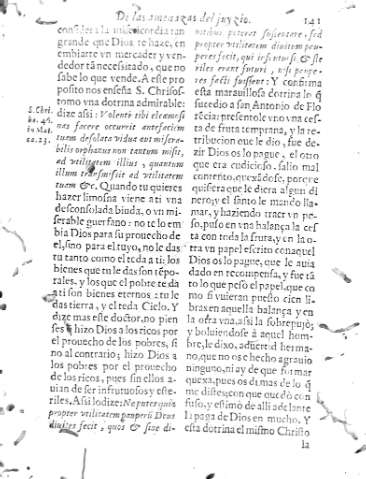 De las amenazas del juyzio. 141
consideres la misericordia tan
grande que Dios te haze, en
embiarte vn mercader y ven-
dedor tã necesitado, que no
sabe lo que vende. A este pro
posito nos enseña S. Chrisos-
tomo vna dotrina admirable:
S. Chri.
dize assi: Volenti tibi eleemosi
nas facere occurrit antefaciem
in Mat.
tuam desolata vidua aut misera-
bilis orphanus non tantum misit,
ad vtilitatem illius, quantum
illum transmissit ad vtilitatem
tuam &c. Quando tu quieres
hazer limosna viene a ti vna
desconsolada biuda, o vn mi-
serable guerfano: no te lo em
bia Dios para su prouecho de
el, sino para el tuyo, no le das
tu tanto como el te da a ti: los
bienes que tu le das son tẽpo-
rales, y los que el pobre te da
a ti son bienes eternos: tu le
das tierra, y el te da Cielo. Y
dize mas este doctor, no pien
ses q̃ hizo Dios a los ricos por
el prouecho de los pobres, si
no al contrario; hizo Dios a
los pobres por el prouecho
de los ricos, pues sin ellos a
uian de ser infrutuosos y este-
riles. Assi lo dize: Ne putes quia
propter vtilitatem pauperũ Deus
diuites fecit, quos & sine di-
uitibus poterat sustentare, sed
propter vtilitatem diuitem pau-
peres fecit, qui infrutuosi & ste
riles erant futuri, nisi paupe-
res facti fuissent: Y confirma
esta marauillosa dotrina lo q̃
sucedio a san Antonio de Flo
rẽcia: presentole vno vna ces-
ta de fruta temprana, y la re-
tribucion que le dio, fue de-
zir Dios os lo pague, el otro
que era cudicioso, salio mal
contento, quexãdose, porque
quisiera que le diera algun di
nero; y el santo le mando lla-
mar, y haziendo traer vn pe-
so, puso en vna balança la ces
ta con toda la fruta, y en la o-
tra vn papel escrito con aquel
Dios os lo pague, que le auia
dado en recompensa, y fue tã
to lo que pesó el papel, que co
mo si vuieran puesto cien li-
bras en aquella balança y en
la otra vna, assi la sobrepujó;
y boluiendose à aquel hom-
bre, le dixo, aduertid herma-
no, que no os e hecho agrauio
ninguno, ni ay de que formar
quexa, pues os di mas de lo q̃
me distes; con que quedò con
fuso, y estimò de alli adelante
la paga de Dios en mucho. Y
esta dotrina el mismo Christo
la